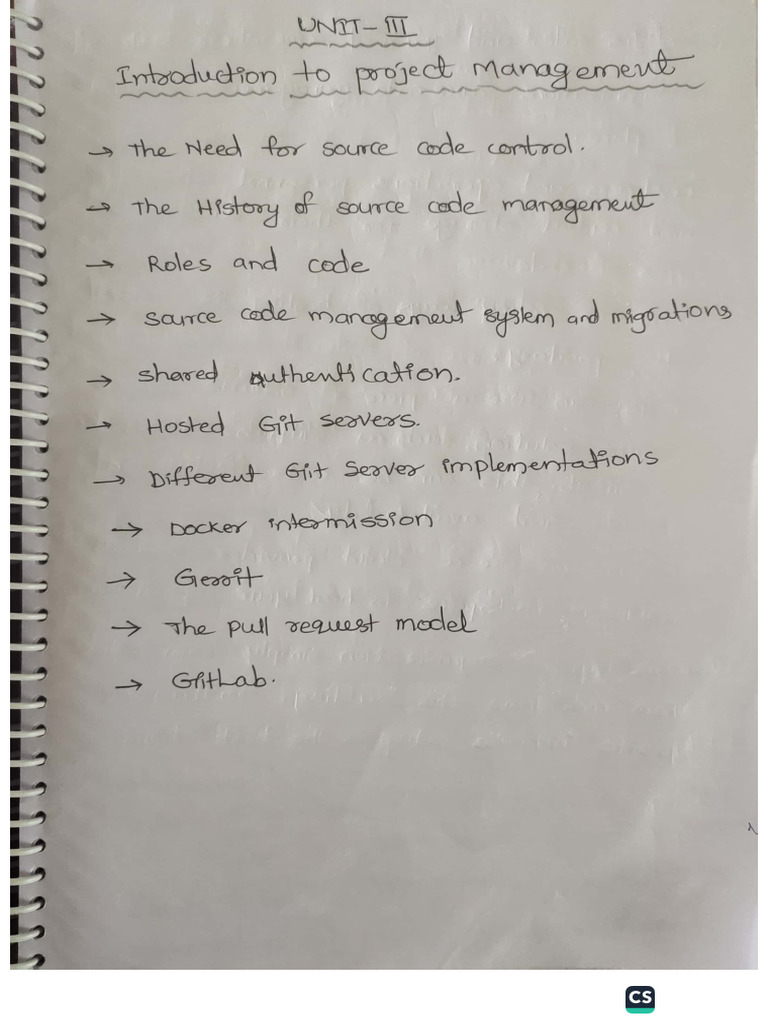 UNIT-III
Introduction to project Management
→ The Need for source code control.
→ The History of source code management
→ Roles and code
→ source code management system and migrations
→ shared authentication.
→ Hosted Git servers.
→ Different Git Server implementations
→ Docker intermission
→ Gerrit
→ The pull request model
→ GitLab.
CS